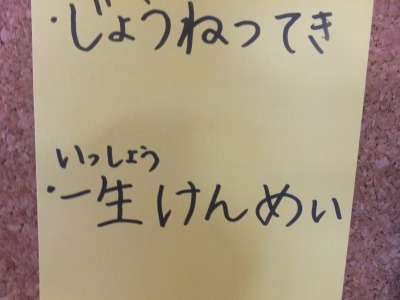 ・じょうねってき
いっしょう
・一生けんめい